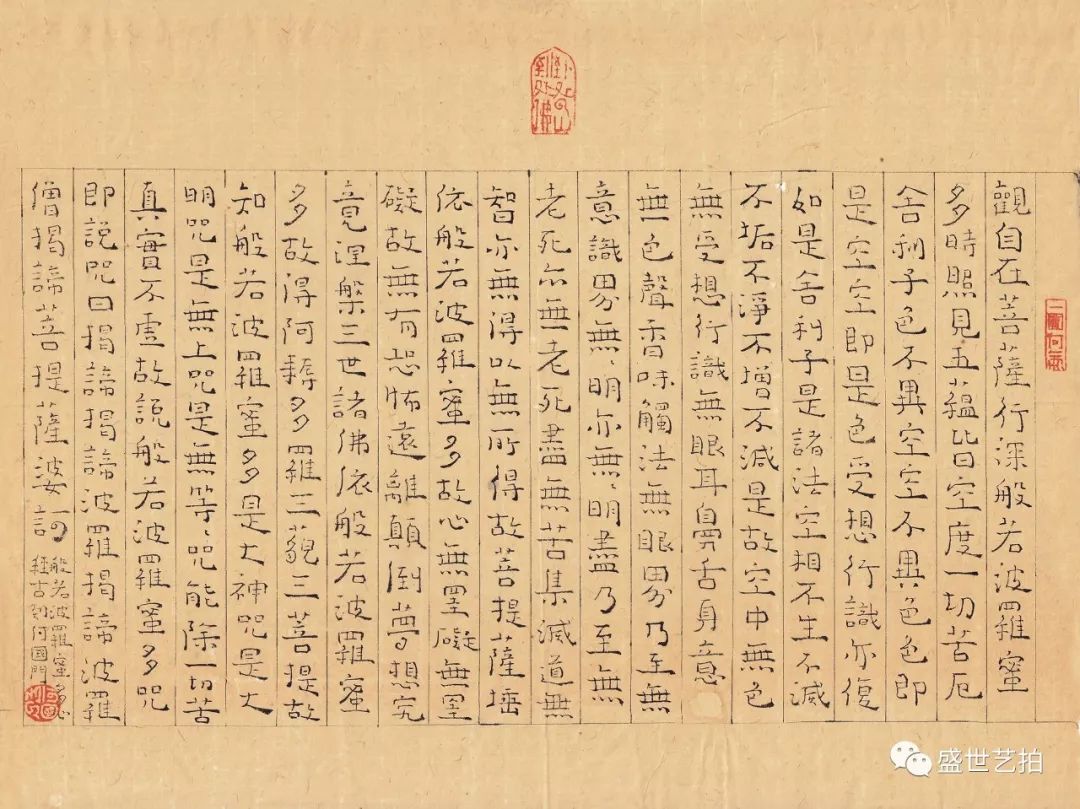 觀自在菩薩行深般若波羅蜜
多時照見五蘊皆空度一切苦厄
舍利子色不異空空不異色色即
是空空即是色受想行識亦復
如是舍利子是諸法空相不生不滅
不垢不淨不增不減是故空中無色
無受想行識無眼耳鼻舌身意
無色聲香味觸法無眼界乃至無
意識界無、明亦無、明盡乃至無
老死亦無老死盡無苦集滅道無
智亦無得以無所得故菩提薩埵
依般若波羅蜜多故心無罣礙無罣
礙故無有恐怖遠離顛倒夢想究
竟涅槃三世諸佛依般若波羅蜜
多故得阿耨多羅三藐三菩提故
知般若波羅蜜多是大神咒是大
明咒是無上咒是無等、咒能除一切苦
真實不虛故說般若波羅蜜多咒
即說咒曰揭諦揭諦波羅揭諦波羅
僧揭諦菩提薩婆訶
般若波羅蜜多心
經古歙何國門
盛世艺拍